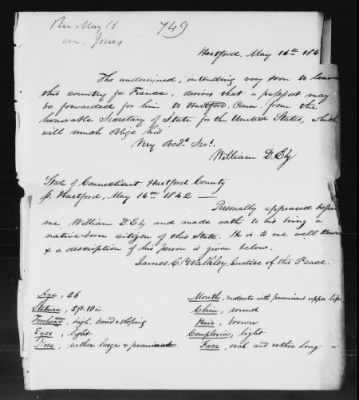 Rec May 16
749
Hartford, May 16th 184
The undersigned, intending very soon to leave
this country for France, desires that a passport may
be forwarded for him to Hartford, Conn. from the
honorable Secretary of State for the United States, which
will much oblige his
Very Obdt. Svt.
William D. Ely
State of Connecticut Hartford County
Hartford, May 16th 1842 —
Personally appeared before
me William D. Ely and made oath to his being a
native-born citizen of this State. He is to me well known
& a description of his person is given below.
James C. Walkley, Justice of the Peace.
Age, 26
Stature, 5 ft. 10 in.
Forehead, high, broad & sloping
Eyes, light
Nose, rather large & prominent
Mouth, moderate with prominent upper lip
Chin, round
Hair, brown
Complexion, light
Face, oval and rather long